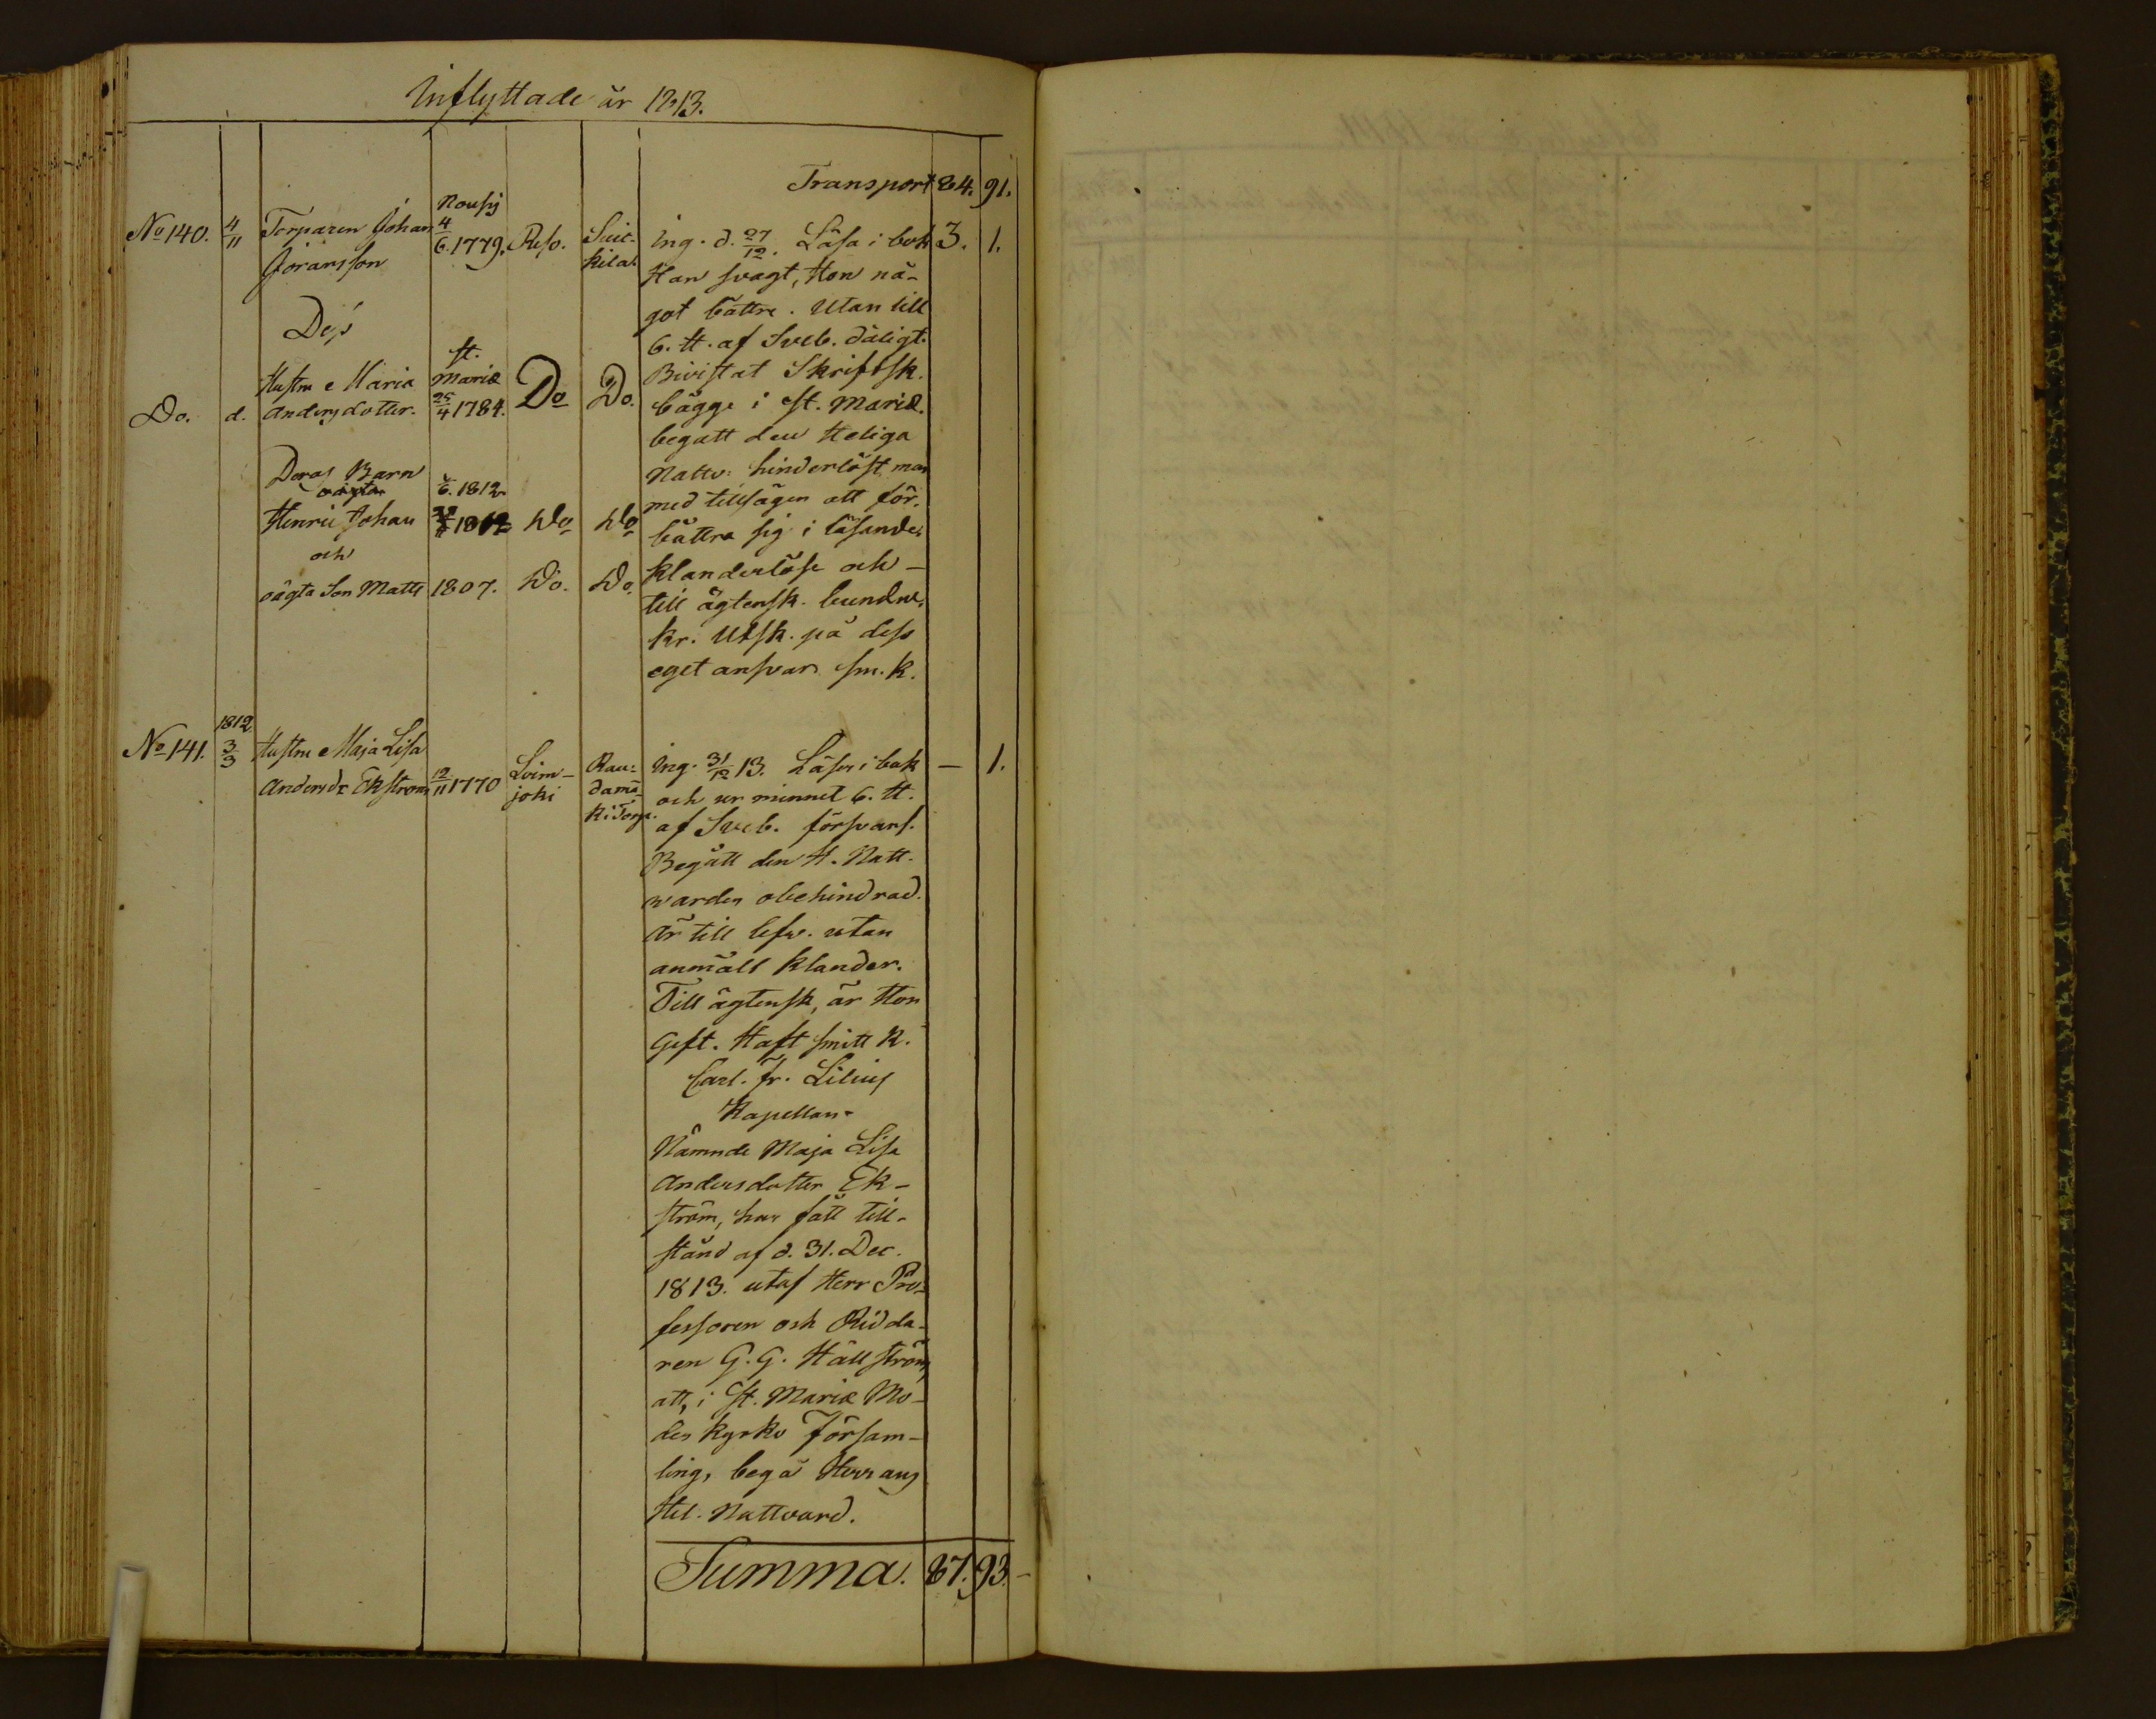 Inflyttade år 1813.
Transport 84. 91.
No 140. 4/11 Torparen Johan Nousis 4/6. 1779. Reso. Suikkila. Ing. d. 27/12. Läsa i bok 3. 1.
Göransson
Han svagt, Hon nå-
got bättre. Utan till
Dess
6. H. af Sveb. dåligt.
Hustru Maria St. Mariæ Bivistat Skriftsk.
Do. d. Andersdotter. 25/4 1784. Do Do. bägge i St. Mariæ.
begått den Heliga
Deras Barn
Nattv: hinderlöst, men
oägta 6. 1812
med tillsägen att för-
Henric Johan 1812 Do Do bättra sig i läsande,
och
klanderlöse och –
oägta Son Matts 1807. Do. Do. till ägtensk. bundne.
kr. Utsk. på dess
eget ansvar. sm. k.
1812
No 141. 3/3 Hustru Maja Lisa
Andersdr Ekström 12/11 1770 Loim-
joki Rau-
damä-
ki Torp. Ing. 31/12 13. Läser i bok — 1.
och ur minnet 6. H.
af Sveb. försvars.
Begått den H. Natt-
varden obehindrad.
är till lefw. utan
anmält klander.
Till ägtensk, är Hon
Gift. Haft smitt K.
Carl. Fr. Lilius
Kapellan.
Nämnde Maja Lisa
Andersdotter Ek-
ström, har fått till-
stånd af d. 31. Dec.
1813. utaf Herr Pro-
fessoren och Ridda-
ren G. G. Hällström,
att, i St. Mariæ Mo-
der kyrko Försam-
ling, begå Herrans
Hel. Nattvard.
Summa. 87. 93. –